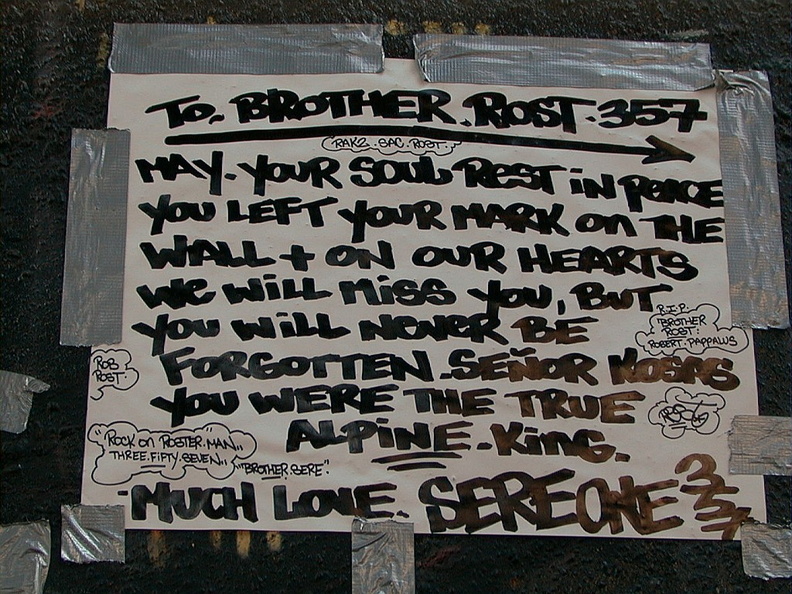 To. BROTHER. ROST. 357
RAKZ. SAC. ROST.
MAY. YOUR SOUL REST iN PEACE
YOU LEFT YOUR MARK ON THE
WALL + ON OUR HEARTS
WE WILL MISS YOU, BUT
YOU WILL NEVER BE
R.I.P.
"BROTHER
ROST:
ROBERT. PAPPALUS
FORGOTTEN. SEÑOR KOSAS
ROB
ROST.
YOU WERE THE TRUE
ALPINE. KING.
"ROCK ON ROSTER. MAN..
THREE. FIFTY. SEVEN..
"BROTHER. SERE".
MUCH LOVE. SEREONE 357